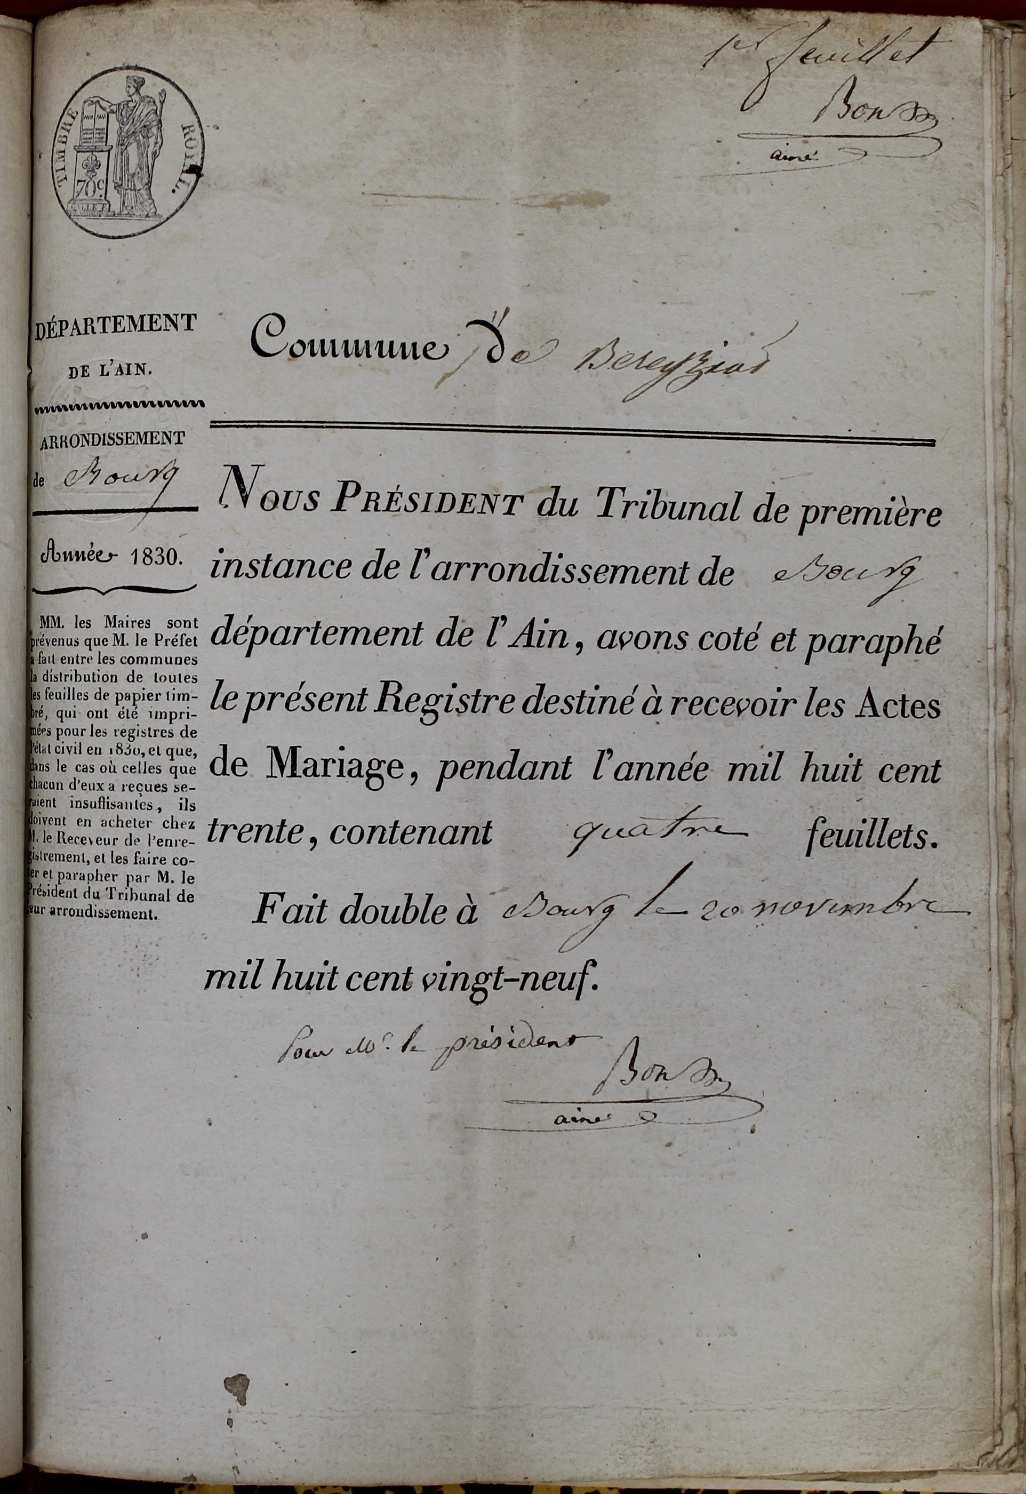 1er feuillet
Bon
ainé
TIMBRE ROYAL.
70c
DÉPARTEMENT
DE L'AIN.
ARRONDISSEMENT
de Bourg
Année 1830.
MM. les Maires sont
prévenus que M. le Préfet
a fait entre les communes
la distribution de toutes
les feuilles de papier tim-
bré, qui ont été impri-
mées pour les registres de
l'état civil en 1830, et que,
dans le cas où celles que
chacun d'eux a reçues se-
raient insuffisantes, ils
doivent en acheter chez
M. le Receveur de l'enre-
gistrement, et les faire co-
ter et parapher par M. le
Président du Tribunal de
leur arrondissement.
Commune de Bereyziat
NOUS PRÉSIDENT du Tribunal de première
instance de l'arrondissement de Bourg
département de l'Ain, avons coté et paraphé
le présent Registre destiné à recevoir les Actes
de Mariage, pendant l'année mil huit cent
trente, contenant quatre feuillets.
Fait double à Bourg le 20 novembre
mil huit cent vingt-neuf.
Pour Mr. le président
Bon
ainé